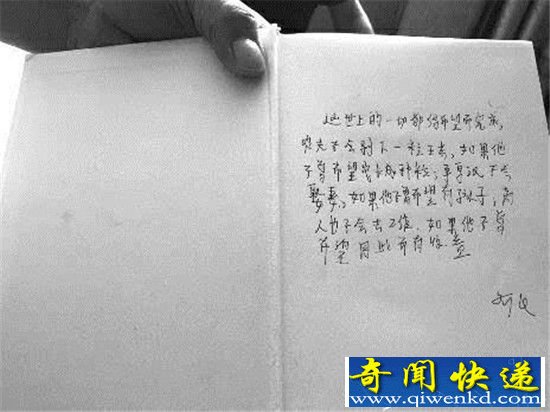 这世上的一切都得希望而完成,
农夫不会剥下一粒玉米,如果他
不曾希望它长成种粒;单身汉不会
娶妻,如果他不曾希望有孩子;商
人也不会去工作,如果他不曾
希望因此而有收益
奇闻快递
www.qiwenkd.com